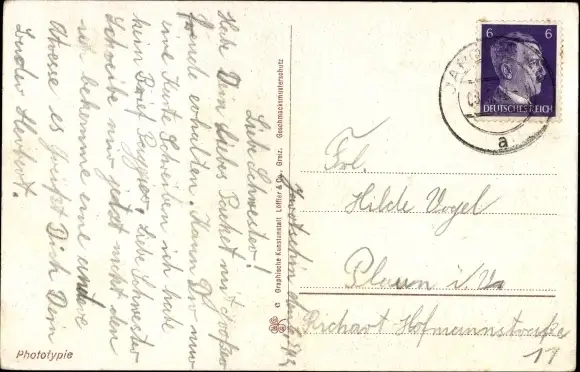 Liebe Schwester!
Habe Dein liebes Packet mit großer
Freude erhalten. Kann Dir nur
eine Karte Schreiben ich habe
kein Brief Papier. Liebe Schwester
Schreibe mir jetzt nicht den
ich bekomme eine andere
Adresse es Grüßt Dich Dein
Bruder Herbert.
Phototypie
© Graphische Kunstanstalt Löffler & Co., Greiz. Geschmacksmusterschutz
6 6
DEUTSCHES REICH
a
Frl.
Hilde Vogel
Plauen i. V.
Richart Hofmannstraße
17